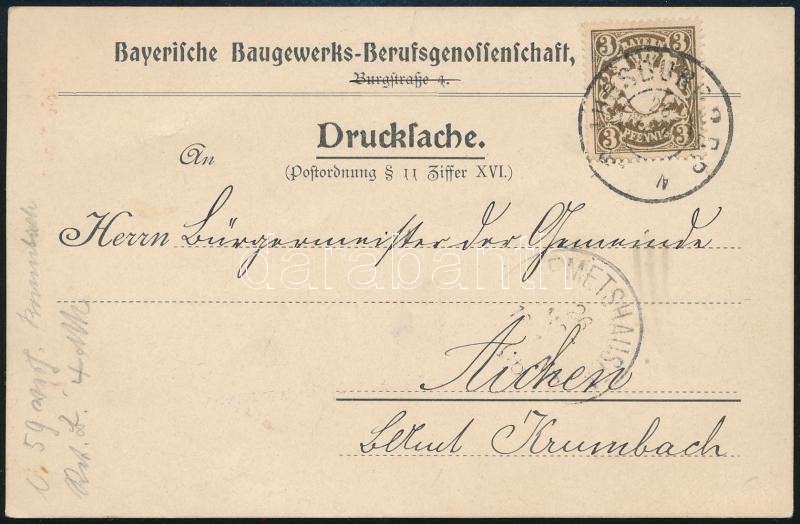 Bayerische Baugewerks-Berufsgenossenschaft,
Burgstraße 4.
3 BAYERN 3
PFENNIG
3 3
Drucksache.
An
(Postordnung § 11 Ziffer XVI.)
Herrn Bürgermeister der Gemeinde
darabanth
METSHAUS
Aichen
Bezamt Krumbach
Krumbach